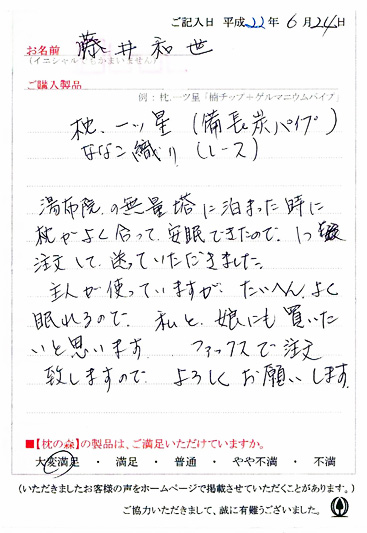 ご記入日 平成22年6月24日
お名前 藤井和世
(イニシャルでもかまいません)
ご購入製品
例：枕.一ツ星「楠チップ+ゲルマニウムパイプ」
枕.一ッ星(備長炭パイプ)
ななこ織り(レース)
湯布院の無量塔に泊まった時に
枕がよく合って、安眠できたので、1つ
注文して、送っていただきました。
主人が使っていますが、たいへん、よく
眠れるので、私と、娘にも買いた
いと思います ファックスで注文
致しますので よろしくお願いします。
■【枕の森】の製品は、ご満足いただけていますか。
大変満足 ・ 満足 ・ 普通 ・ やや不満 ・ 不満
(いただきましたお客様の声をホームページで掲載させていただくことがあります。)
ご協力いただきまして、誠に有難うございました。